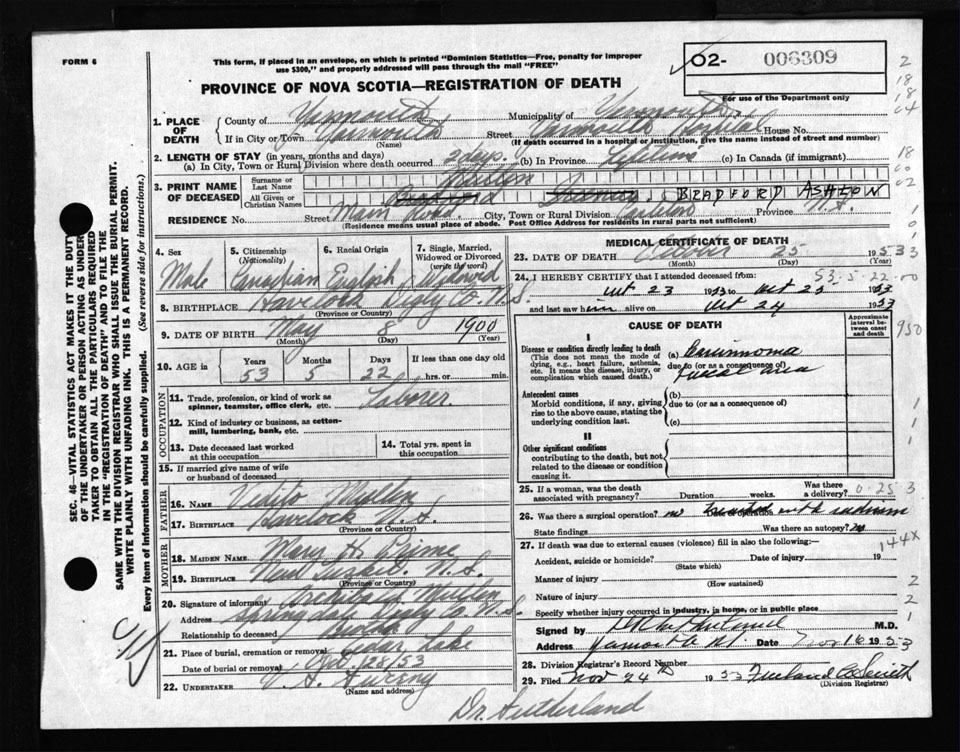 FORM 6
This form, if placed in an envelope, on which is printed "Dominion Statistics—Free, penalty for improper
use $300," and properly addressed will pass through the mail "FREE"
PROVINCE OF NOVA SCOTIA—REGISTRATION OF DEATH
02- 006309
For use of the Department only
SEC. 46—VITAL STATISTICS ACT MAKES IT THE DUTY
OF THE UNDERTAKER OR PERSON ACTING AS UNDER-
TAKER TO OBTAIN ALL THE PARTICULARS REQUIRED
IN THE "REGISTRATION OF DEATH" AND TO FILE THE
SAME WITH THE DIVISION REGISTRAR WHO SHALL ISSUE THE BURIAL PERMIT.
WRITE PLAINLY WITH UNFADING INK. THIS IS A PERMANENT RECORD.
Every item of information should be carefully supplied. (See reverse side for instructions.)
1. PLACE OF DEATH County of Yarmouth Municipality of Yarmouth
If in City or Town Yarmouth (Name) Street Yarmouth Hospital House No.
(If death occurred in a hospital or institution, give the name instead of street and number)
2. LENGTH OF STAY (in years, months and days)
(a) In City, Town or Rural Division where death occurred 2 days. (b) In Province Lifetime (c) In Canada (if immigrant)
3. PRINT NAME OF DECEASED Surname or Last Name
All Given or Christian Names Bradford BRADFORD ASHTON
RESIDENCE No. Street Main Road City, Town or Rural Division Carleton Province N.S.
(Residence means usual place of abode. Post Office Address for rural parts not sufficient)
4. Sex Male
5. Citizenship (Nationality) Canadian
6. Racial Origin English
7. Single, Married, Widowed or Divorced (write the word)
8. BIRTHPLACE Havelock Digby Co. N.S.
(Province or Country)
9. DATE OF BIRTH May 8 1900
(Month) (Day) (Year)
10. AGE in Years 53 Months 5 Days 22 If less than one day old hrs. or min.
OCCUPATION
11. Trade, profession, or kind of work as
spinner, teamster, office clerk, etc. Laborer
12. Kind of industry or business, as cotton-
mill, lumbering, bank, etc.
13. Date deceased last worked at this occupation
14. Total yrs. spent in this occupation
15. If married give name of wife
or husband of deceased
FATHER
16. NAME
17. BIRTHPLACE Havelock N.S.
(Province or Country)
MOTHER
18. MAIDEN NAME Mary H. Prime
19. BIRTHPLACE New Tusket N.S.
(Province or Country)
20. Signature of informant Archibald
Address Springdale Digby Co. N.S.
Relationship to deceased Brother
21. Place of burial, cremation or removal Cedar Lake
Date of burial or removal Oct 28/53
22. UNDERTAKER V. A. Sweeny
(Name and address)
MEDICAL CERTIFICATE OF DEATH
23. DATE OF DEATH October 25 1953
(Month) (Day) (Year)
24. I HEREBY CERTIFY that I attended deceased from: 53-5-22-00
Oct 23 1953 to Oct 25 1953
and last saw him alive on Oct 24 1953
CAUSE OF DEATH
Approximate interval between onset and death
I
Disease or condition directly leading to death
(This does not mean the mode of
dying, e.g., heart failure, asthenia,
etc. It means the disease, injury, or
complication which caused death.)
(a) Carcinoma
due to (or as a consequence of)
Antecedent causes
Morbid conditions, if any, giving
rise to the above cause, stating the
underlying condition last.
(b)
due to (or as a consequence of)
(c)
II
Other significant conditions
contributing to the death, but not
related to the disease or condition
causing it.
25. If a woman, was the death
associated with pregnancy? Duration weeks. Was there a delivery? 0-25
26. Was there a surgical operation? no Date of operation treated with radium
State findings Was there an autopsy? no
27. If death was due to external causes (violence) fill in also the following:— 144X
Accident, suicide or homicide? Date of injury 19
(State which)
Manner of injury
(How sustained)
Nature of injury
Specify whether injury occurred in industry, in home, or in public place
Signed by M.D.
Address Yarmouth N.S. Date Nov 16 1953
28. Division Registrar's Record Number
29. Filed Nov 24th 1953
(Division Registrar)
Dr. Sutherland
2
18
18
64
18
00
02
1
0
1
3
950
1
1
1
3
2
2
1